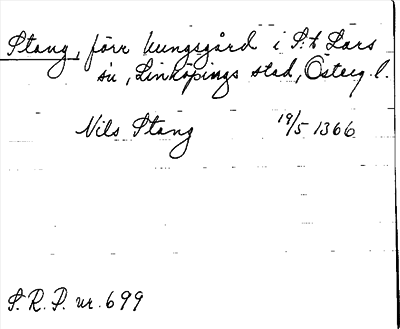 Stang, förr kungsgård i S:t Lars
sn, Linköpings stad, Österg. l.
Nils Stang 19/5 1366
S.R.P. nr. 699